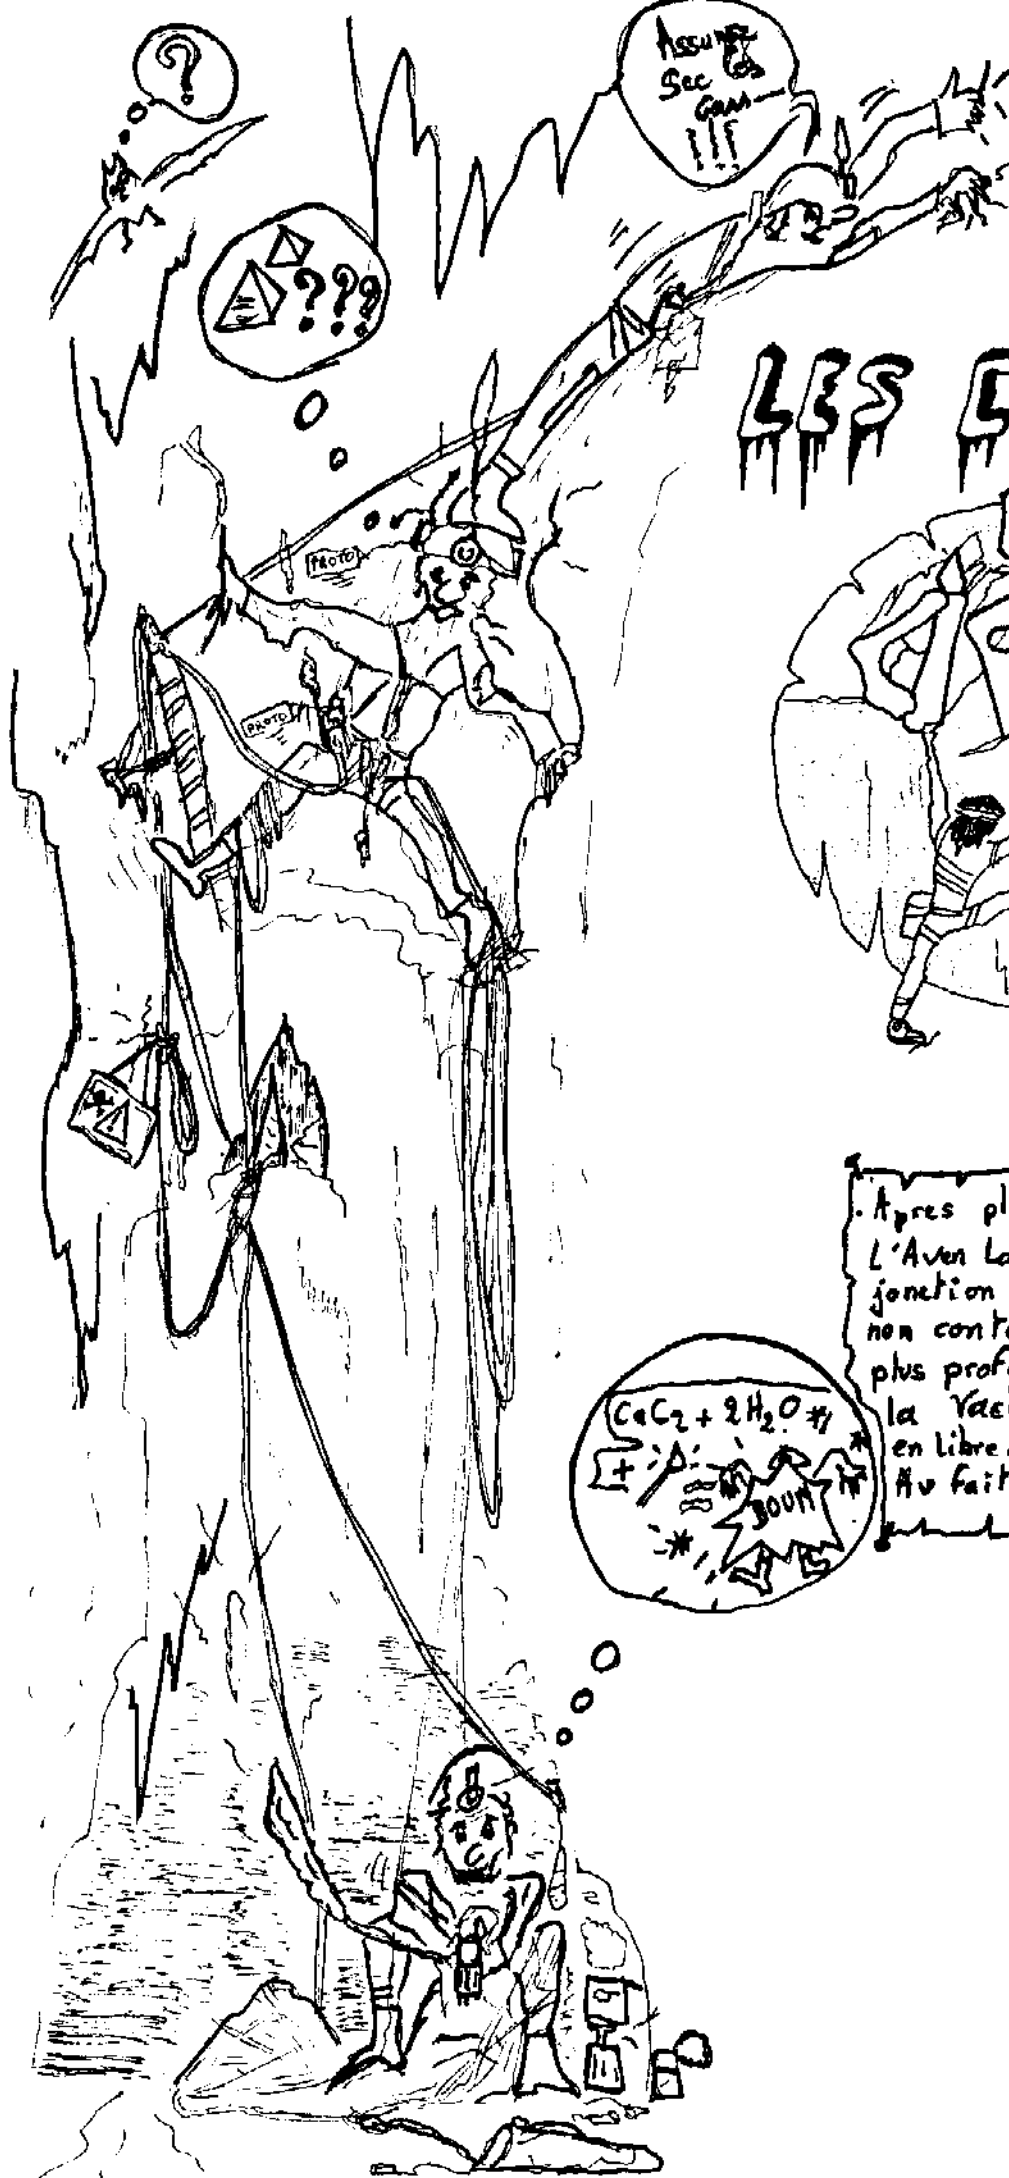 ?
Assurez
Sec les
Gars
!!!
???
LES
PROTO
PROTO
. Apres pl
L'Aven La
jonction
non conte
plus profo
la Vac
en libre
Au fait
CaC2 + 2H2O
+
BOUM